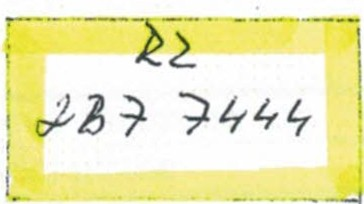 RZ
2B7 7444